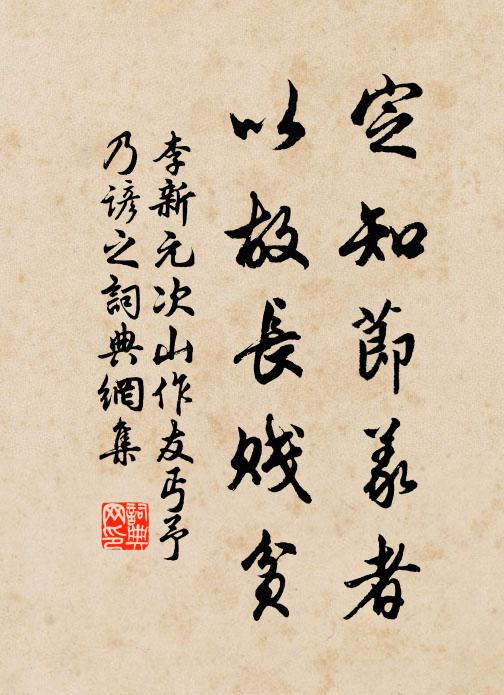 定知節義者
以故長賤貧
李新元次山作友丐予
乃諺之詞典網集
詞典
网印